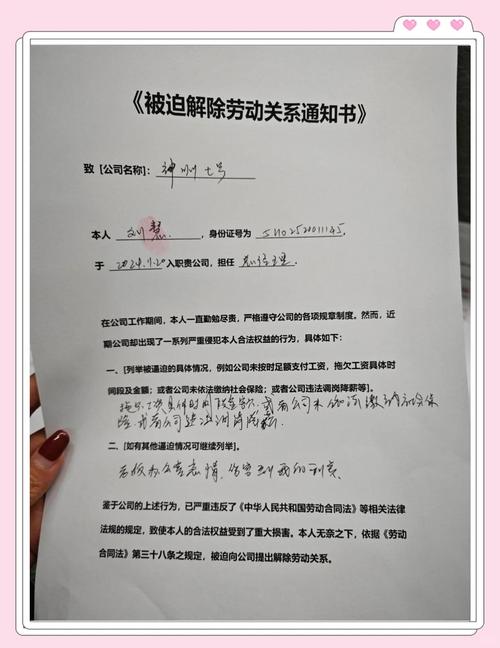 《被迫解除劳动关系通知书》
致 [公司名称]: 神州七号
本人 刘慧 ，身份证号为
于 入职贵公司，担任 总经理。
在公司工作期间，本人一直勤勉尽责，严格遵守公司的各项规章制度。然而，近
期公司却出现了一系列严重侵犯本人合法权益的行为，具体如下：
一、[列举被逼迫的具体情况，例如公司未按时足额支付工资，拖欠工资具体时
间段及金额；或者公司未依法缴纳社会保险；或者公司违法调岗降薪等]。
拖欠工资具体时间段金额 或者公司未依法缴纳社会保
险。或者公司违法调岗降薪。
二、[如有其他逼迫情形可继续列举]。
老板 表情，伤害到我的利益
鉴于公司的上述行为，已严重违反了《中华人民共和国劳动合同法》等相关法律
法规的规定，致使本人的合法权益受到了重大损害。本人无奈之下，依据《劳动
合同法》第三十八条之规定，被迫向公司提出解除劳动关系。